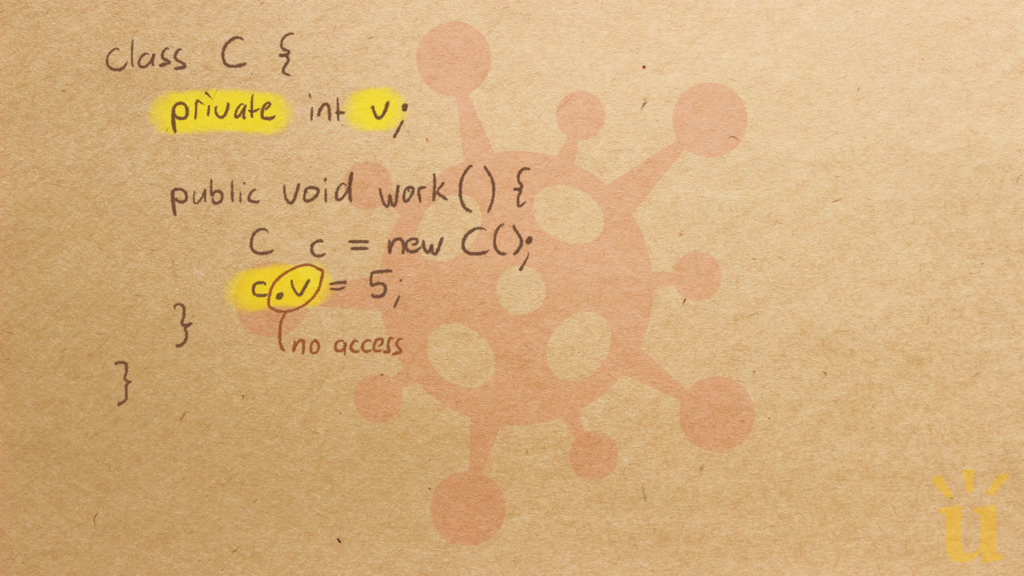 class C {
private int v;
public void work() {
C c = new C();
c.v = 5;
}
no access
}
u